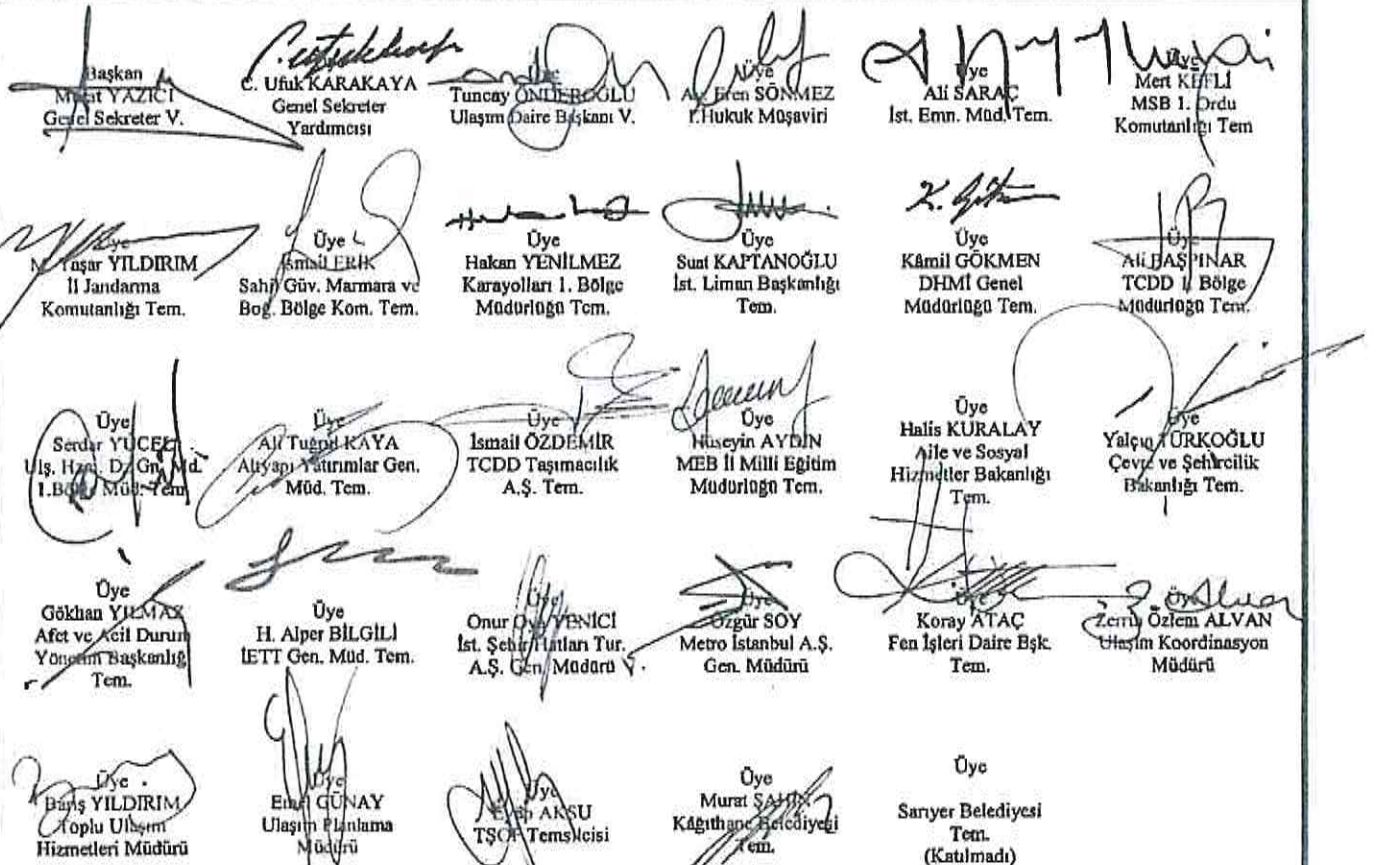 Başkan
Murat YAZICI
Genel Sekreter V.
C. Ufuk KARAKAYA
Genel Sekreter
Yardımcısı
Üye
Tuncay ÖNDEROĞLU
Ulaşım Daire Başkanı V.
Üye
Av. Eren SÖNMEZ
1.Hukuk Müşaviri
Üye
Ali SARAÇ
İst. Emn. Müd. Tem.
Üye
Mert KEFLİ
MSB 1. Ordu
Komutanlığı Tem
Üye
M. Yaşar YILDIRIM
İl Jandarma
Komutanlığı Tem.
Üye
İsmail ERİK
Sahil Güv. Marmara ve
Boğ. Bölge Kom. Tem.
Üye
Hakan YENİLMEZ
Karayolları 1. Bölge
Müdürlüğü Tem.
Üye
Suat KAPTANOĞLU
İst. Liman Başkanlığı
Tem.
Üye
Kâmil GÖKMEN
DHMİ Genel
Müdürlüğü Tem.
Üye
Ali BAŞPINAR
TCDD 1. Bölge
Müdürlüğü Tem.
Üye
Serdar YÜCEL
Ulş. Hzm. Dz. Gn. Md.
1.Bölge Müd. Tem.
Üye
Ali Tuğrul KAYA
Altyapı Yatırımlar Gen.
Müd. Tem.
Üye
İsmail ÖZDEMİR
TCDD Taşımacılık
A.Ş. Tem.
Üye
Hüseyin AYDIN
MEB İl Milli Eğitim
Müdürlüğü Tem.
Üye
Halis KURALAY
Aile ve Sosyal
Hizmetler Bakanlığı
Tem.
Üye
Yalçın TÜRKOĞLU
Çevre ve Şehircilik
Bakanlığı Tem.
Üye
Gökhan YILMAZ
Afet ve Acil Durum
Yönetim Başkanlığı
Tem.
Üye
H. Alper BİLGİLİ
İETT Gen. Müd. Tem.
Üye
Onur Oya YENİCİ
İst. Şehir Hatları Tur.
A.Ş. Gen. Müdürü V.
Üye
Özgür SOY
Metro İstanbul A.Ş.
Gen. Müdürü
Üye
Koray ATAÇ
Fen İşleri Daire Bşk.
Tem.
Üye
Zerrin Özlem ALVAN
Ulaşım Koordinasyon
Müdürü
Üye
Barış YILDIRIM
Toplu Ulaşım
Hizmetleri Müdürü
Üye
GÜNAY
Ulaşım Planlama
Müdürü
Üye
Eyüp AKSU
TŞOF Temsilcisi
Üye
Murat ŞAHİN
Kâğıthane Belediyesi
Tem.
Üye
Sarıyer Belediyesi
Tem.
(Katılmadı)